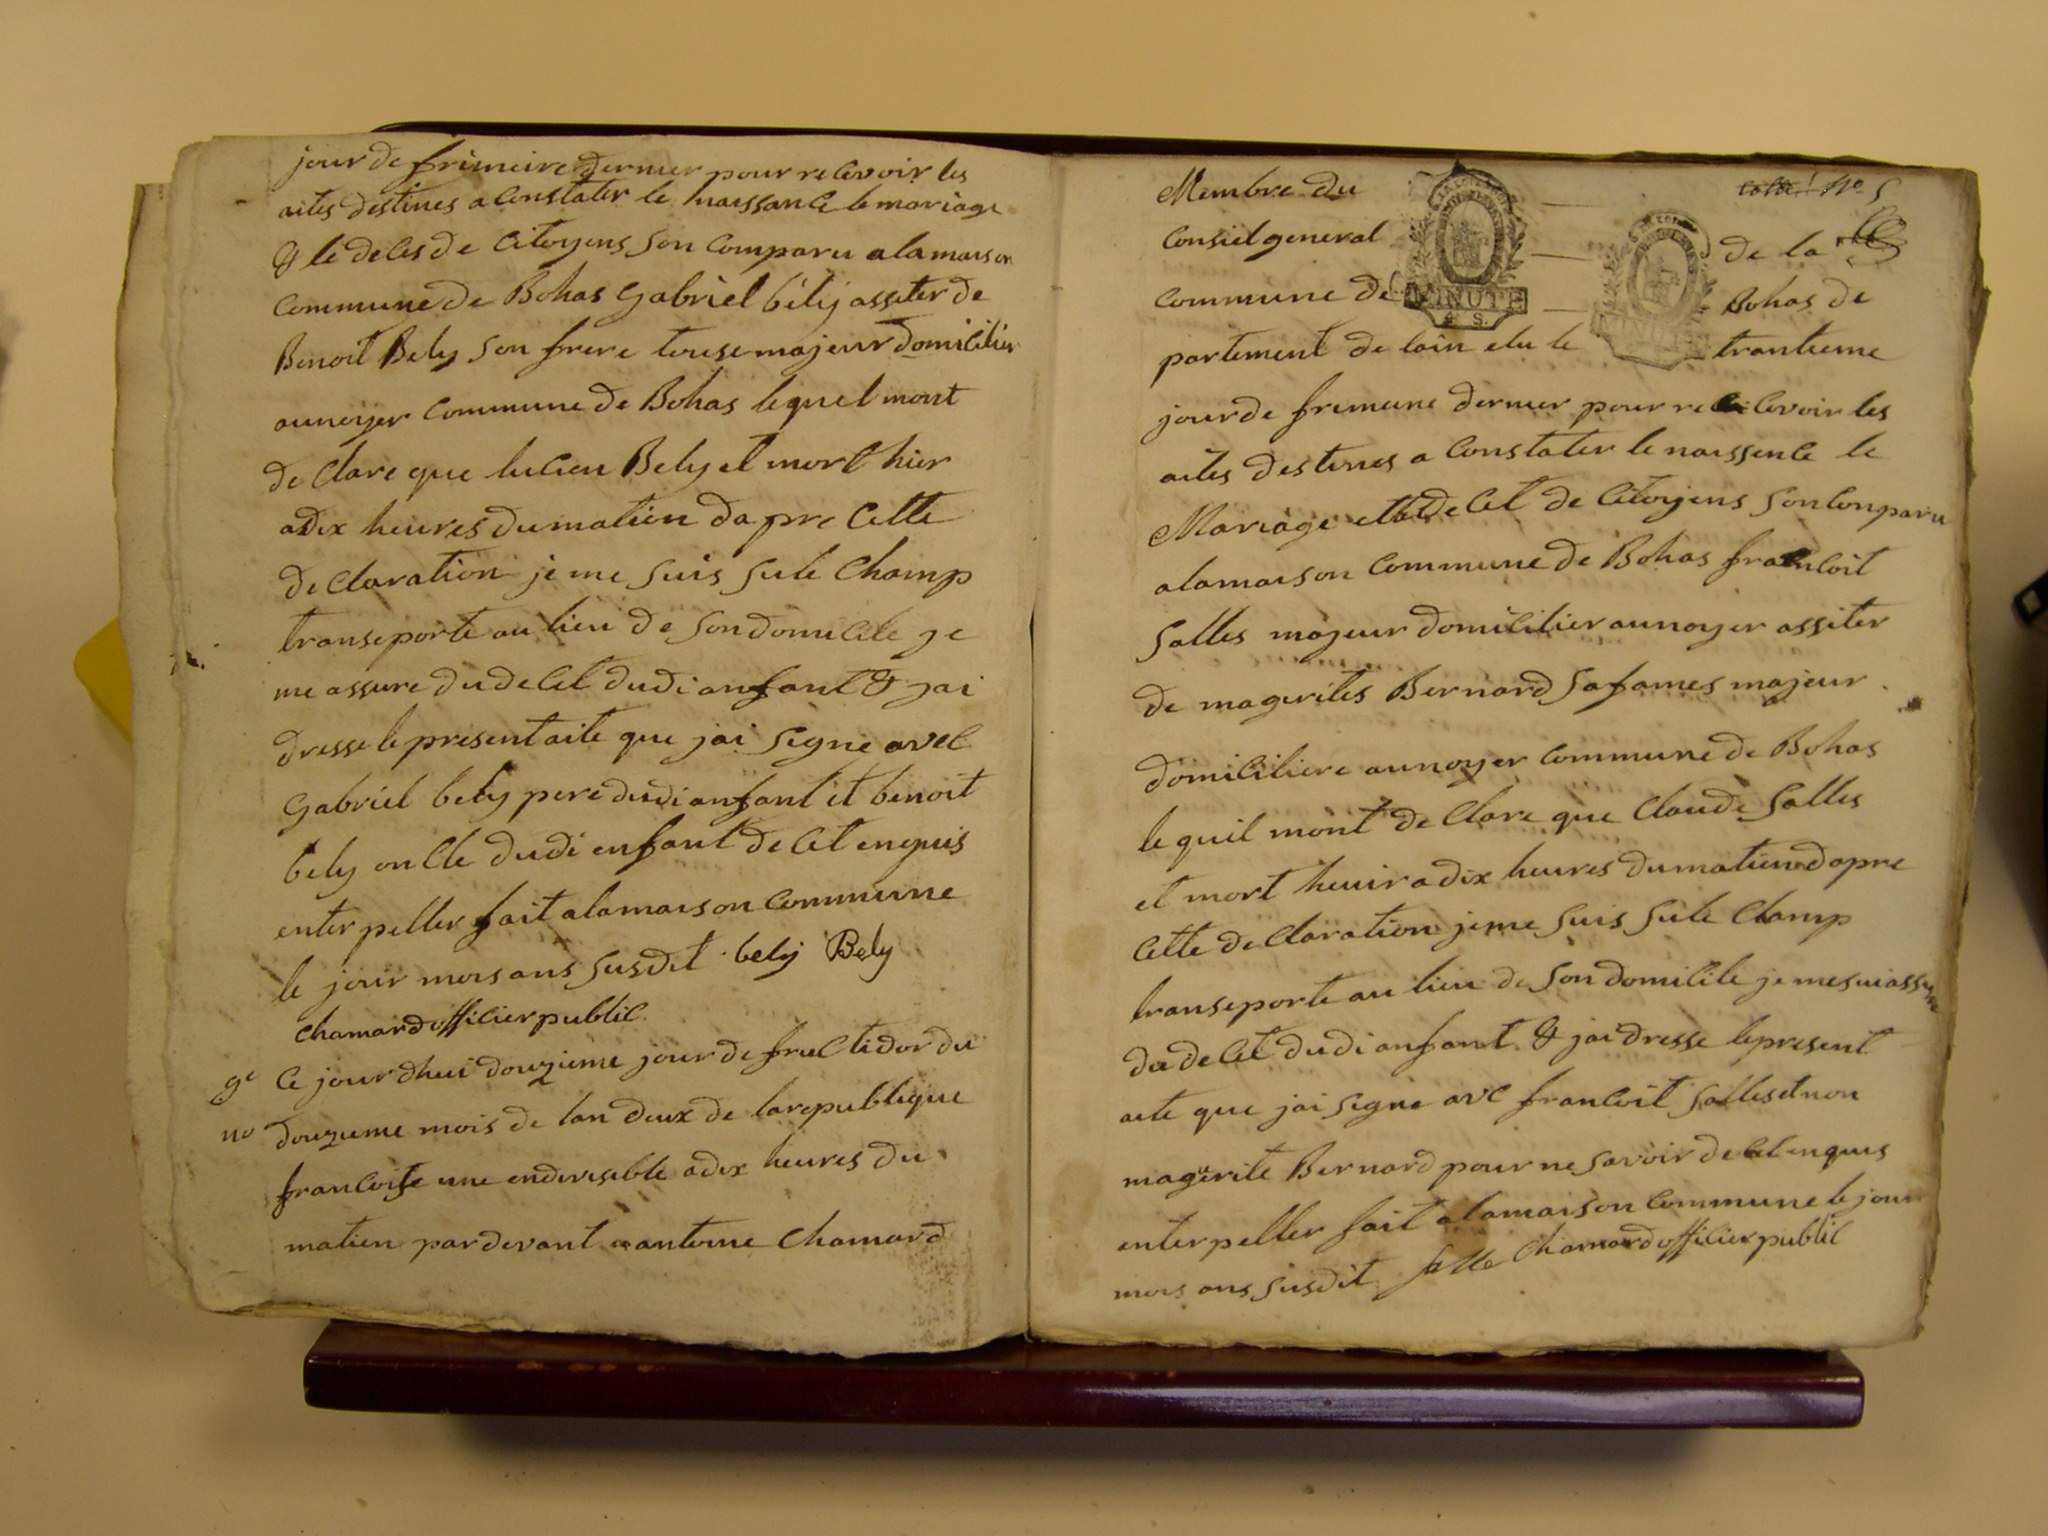 jour de frimeire dernier pour relevoir les
aites destines a Constater le naissanCe le mariage
& le deCes de Citoyens son Comparu a la maison
Commune de Bohas Gabriel bely assiter de
Benoit Bely son frere touse majeur domiCilier
aunoyer Commune de Bohas lequel mont
de Clare que luCien Bely et mort hier
a dix heures du matien dapre Cette
de Claration je me suis sule Champ
transeporte au lieu de son domiCile je
me assure du deCet dudi anfant & jai
dresse le present aite que jai signe aveC
Gabriel bely pere dudi anfant et benoit
bely onCle dudi enfant de Cet enquis
enter peller fait a la maison Commune
le jour mois ans susdit bely Bely
Chamard offiCier publiC
9e Ce jour dhui douzieme jour de fruCtidor du
no douzieme mois de lan deux de la republique
franCoise une endivisible a dix heures du
matien par devant antoine Chamard
Membre du No 5
Consiel general de la
Commune de MINUTE Bohas de
4 S.
partement de lain elu le trantieme
jour de frimeire dernier pour reCevoir les
aites destines a Constater le naissenCe le
Mariage et deCet de Citoyens son Conparu
a la maison Commune de Bohas franCoit
Salles majeur domiCilier aunoyer assiter
de magerites Bernard sa fames majeur
domiCiliere aunoyer Commune de Bohas
le quil mont de Clare que Claude Salles
et mort heuir a dix heures du matien dapre
Cette de Claration je me suis sule Champ
transeporte au lieu de son domiCile je me sui assure
du deCet dudi anfant & jai dresse le present
aite que jai signe aveC franCoit Salles et non
magerite Bernard pour ne savoir de Cet enquis
enter peller fait a la maison Commune le jour
mois ans susdit salle Chamard offiCier publiC